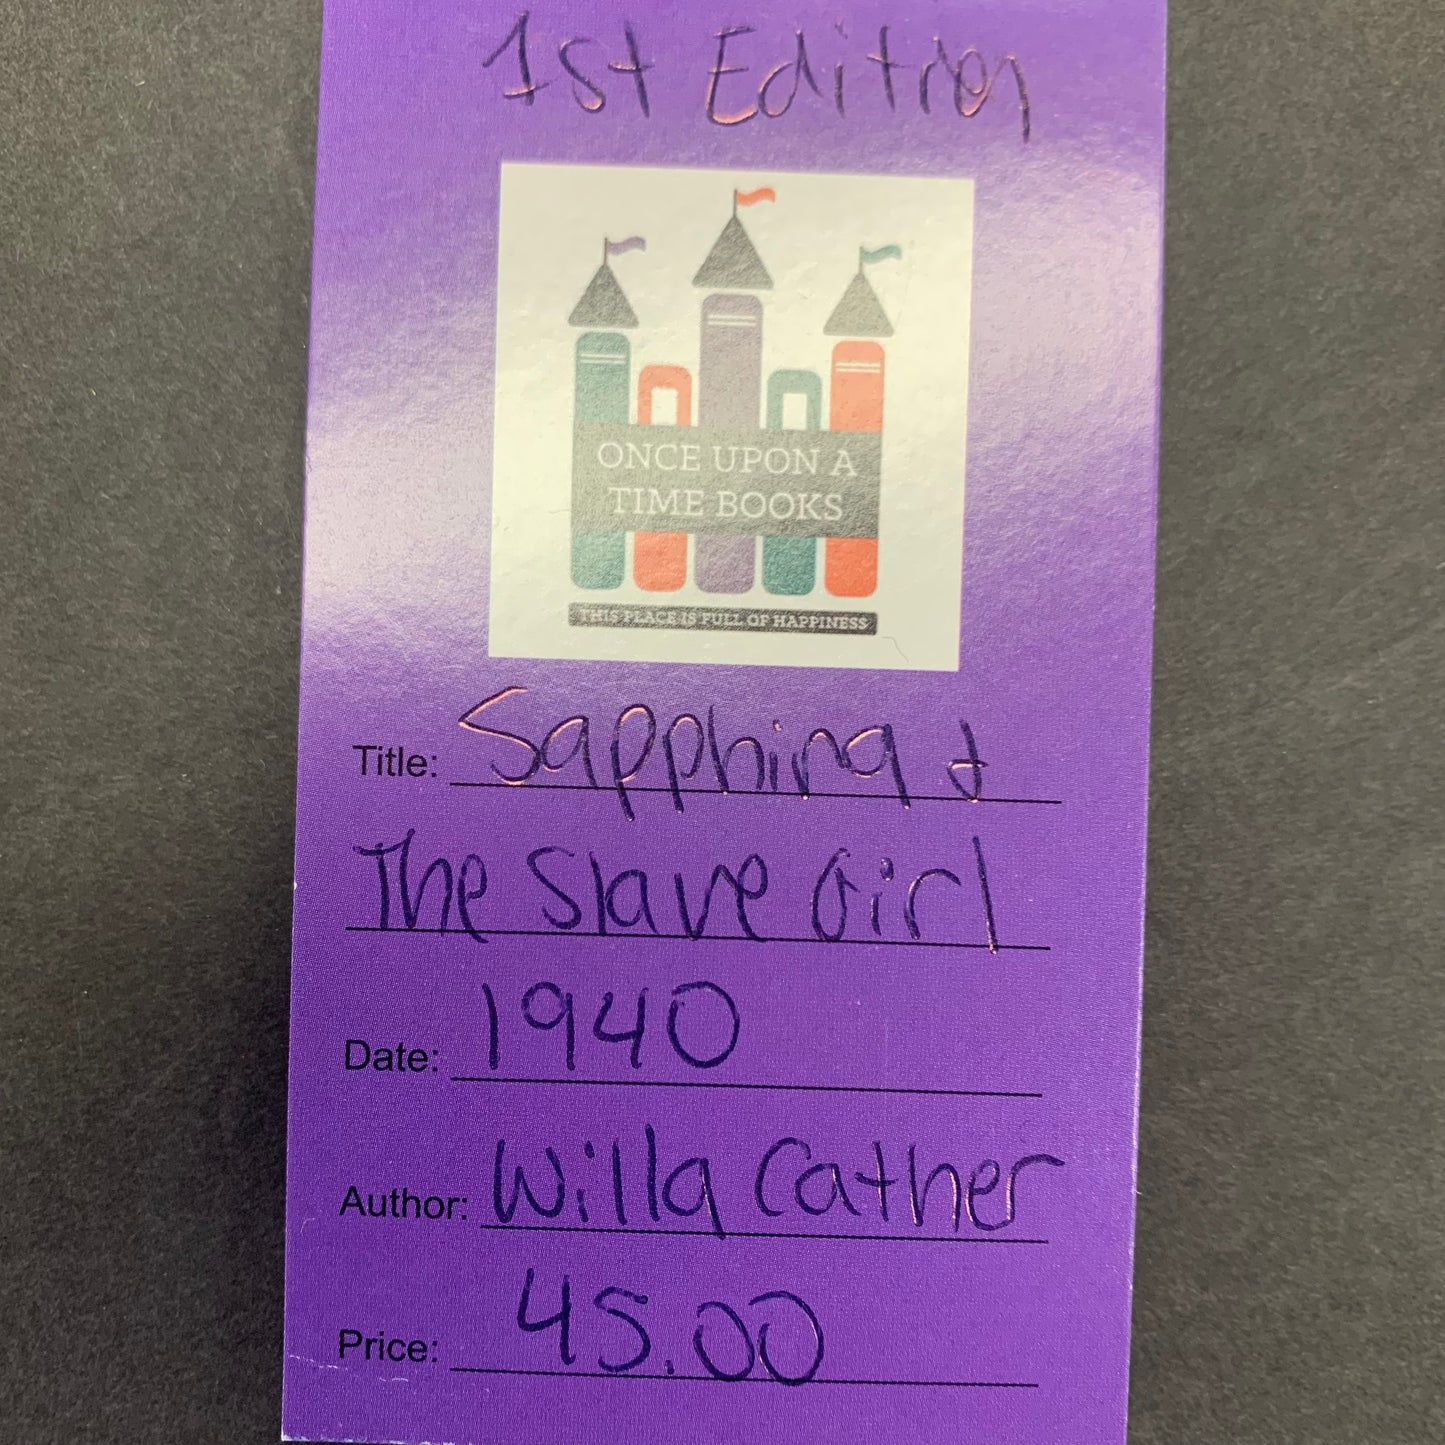 1st Edition
ONCE UPON A
TIME BOOKS
THIS PLACE IS FULL OF HAPPINESS
Title: Sapphira &
The Slave Girl
Date: 1940
Author: Willa Cather
Price: 45.00